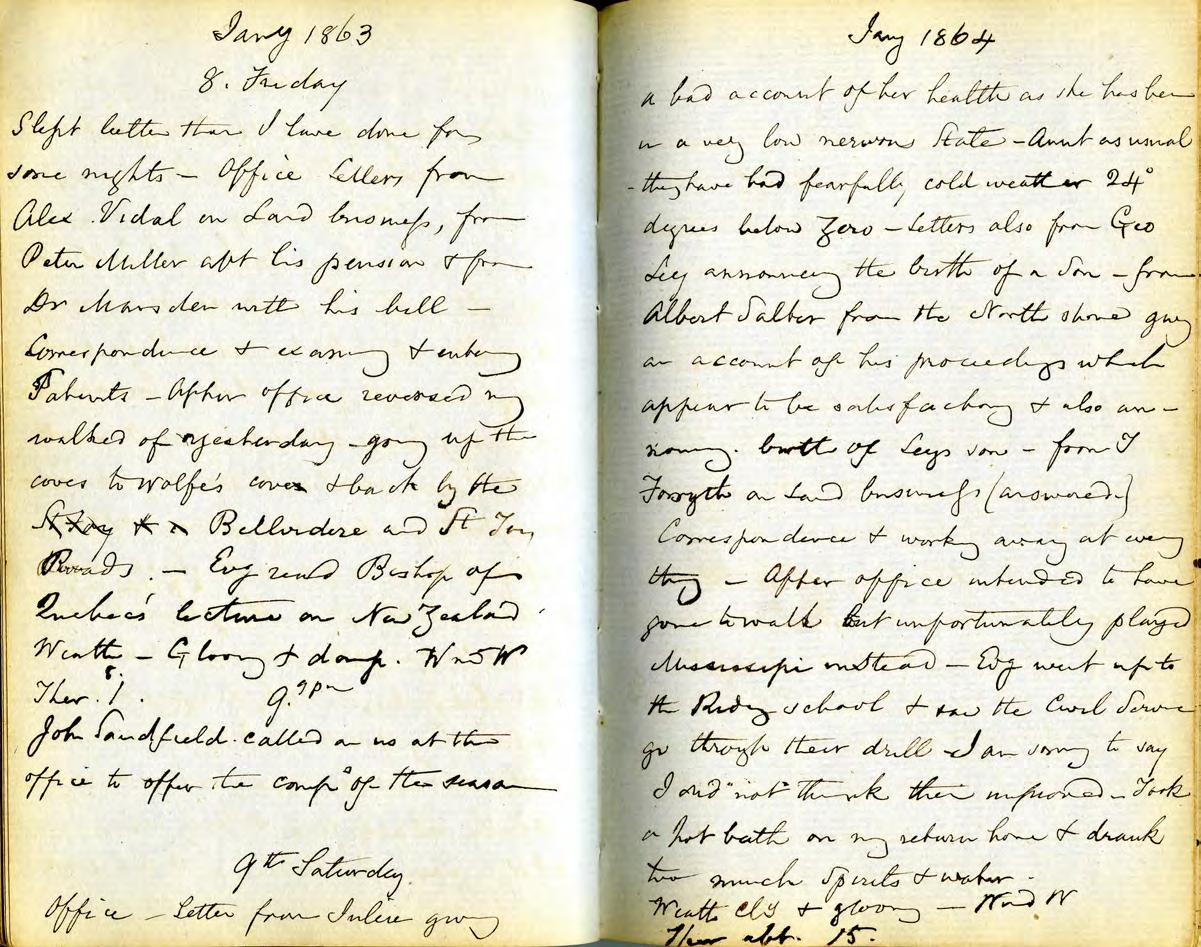 Jany 1863
8. Friday
Slept better than I have done for
some nights – Office Letters from
Alex. Vidal on Land business, from
Peter Miller abt his pension & from
Dr Marsden with his bill –
Correspondence & examing & entering
Patents – After office reversed my
walked of yesterday – going up the
coves to Wolfe's cove & back by the
Bellvidere and St Foy
Roads. – Evg read Bishop of
Quebec's lecture on New Zealand
Weath – Gloomy & damp. Wnd W
Ther. 8. 1. 9. 9 pm
John Sandfield called on us at the
office to offer the comps of the season
9th Saturday
Office – Letter from Juliee giving
Jany 1864
a bad account of her health as she has been
in a very low nervous State – Aunt as usual
– they have had fearfully cold weather 24°
degrees below Zero – Letters also from Geo
Ley announcing the birth of a Son – from
Albert Salter from the North shore giving
an account of his proceedings which
appear to be satisfactory & also an-
nouncing birth of Leys son – from T
Forsyth on Land business (answered)
Correspondence & working away at every
thing – After office intended to have
gone to walk but unfortunately played
Mississipi instead – Evg went up to
the Riding school & saw the Civil Service
go through their drill – I am sorry to say
I did "not" think them improved – Took
a hot bath on my return home & drank
too much Spirits & water.
Weath cly & gloomy – Wnd W
Ther abt. 15.